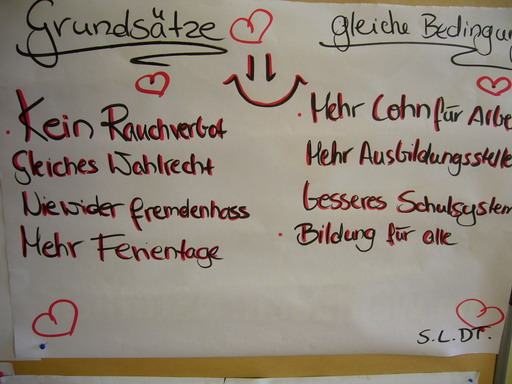 Grundsätze
Kein Rauchverbot
gleiches Wahlrecht
Niewider fremdenhass
Mehr Ferientage
gleiche Bedingun
Mehr Lohn für Arbe
Mehr Ausbildungsstelle
besseres Schulsystem
Bildung für alle
S.L.DT.